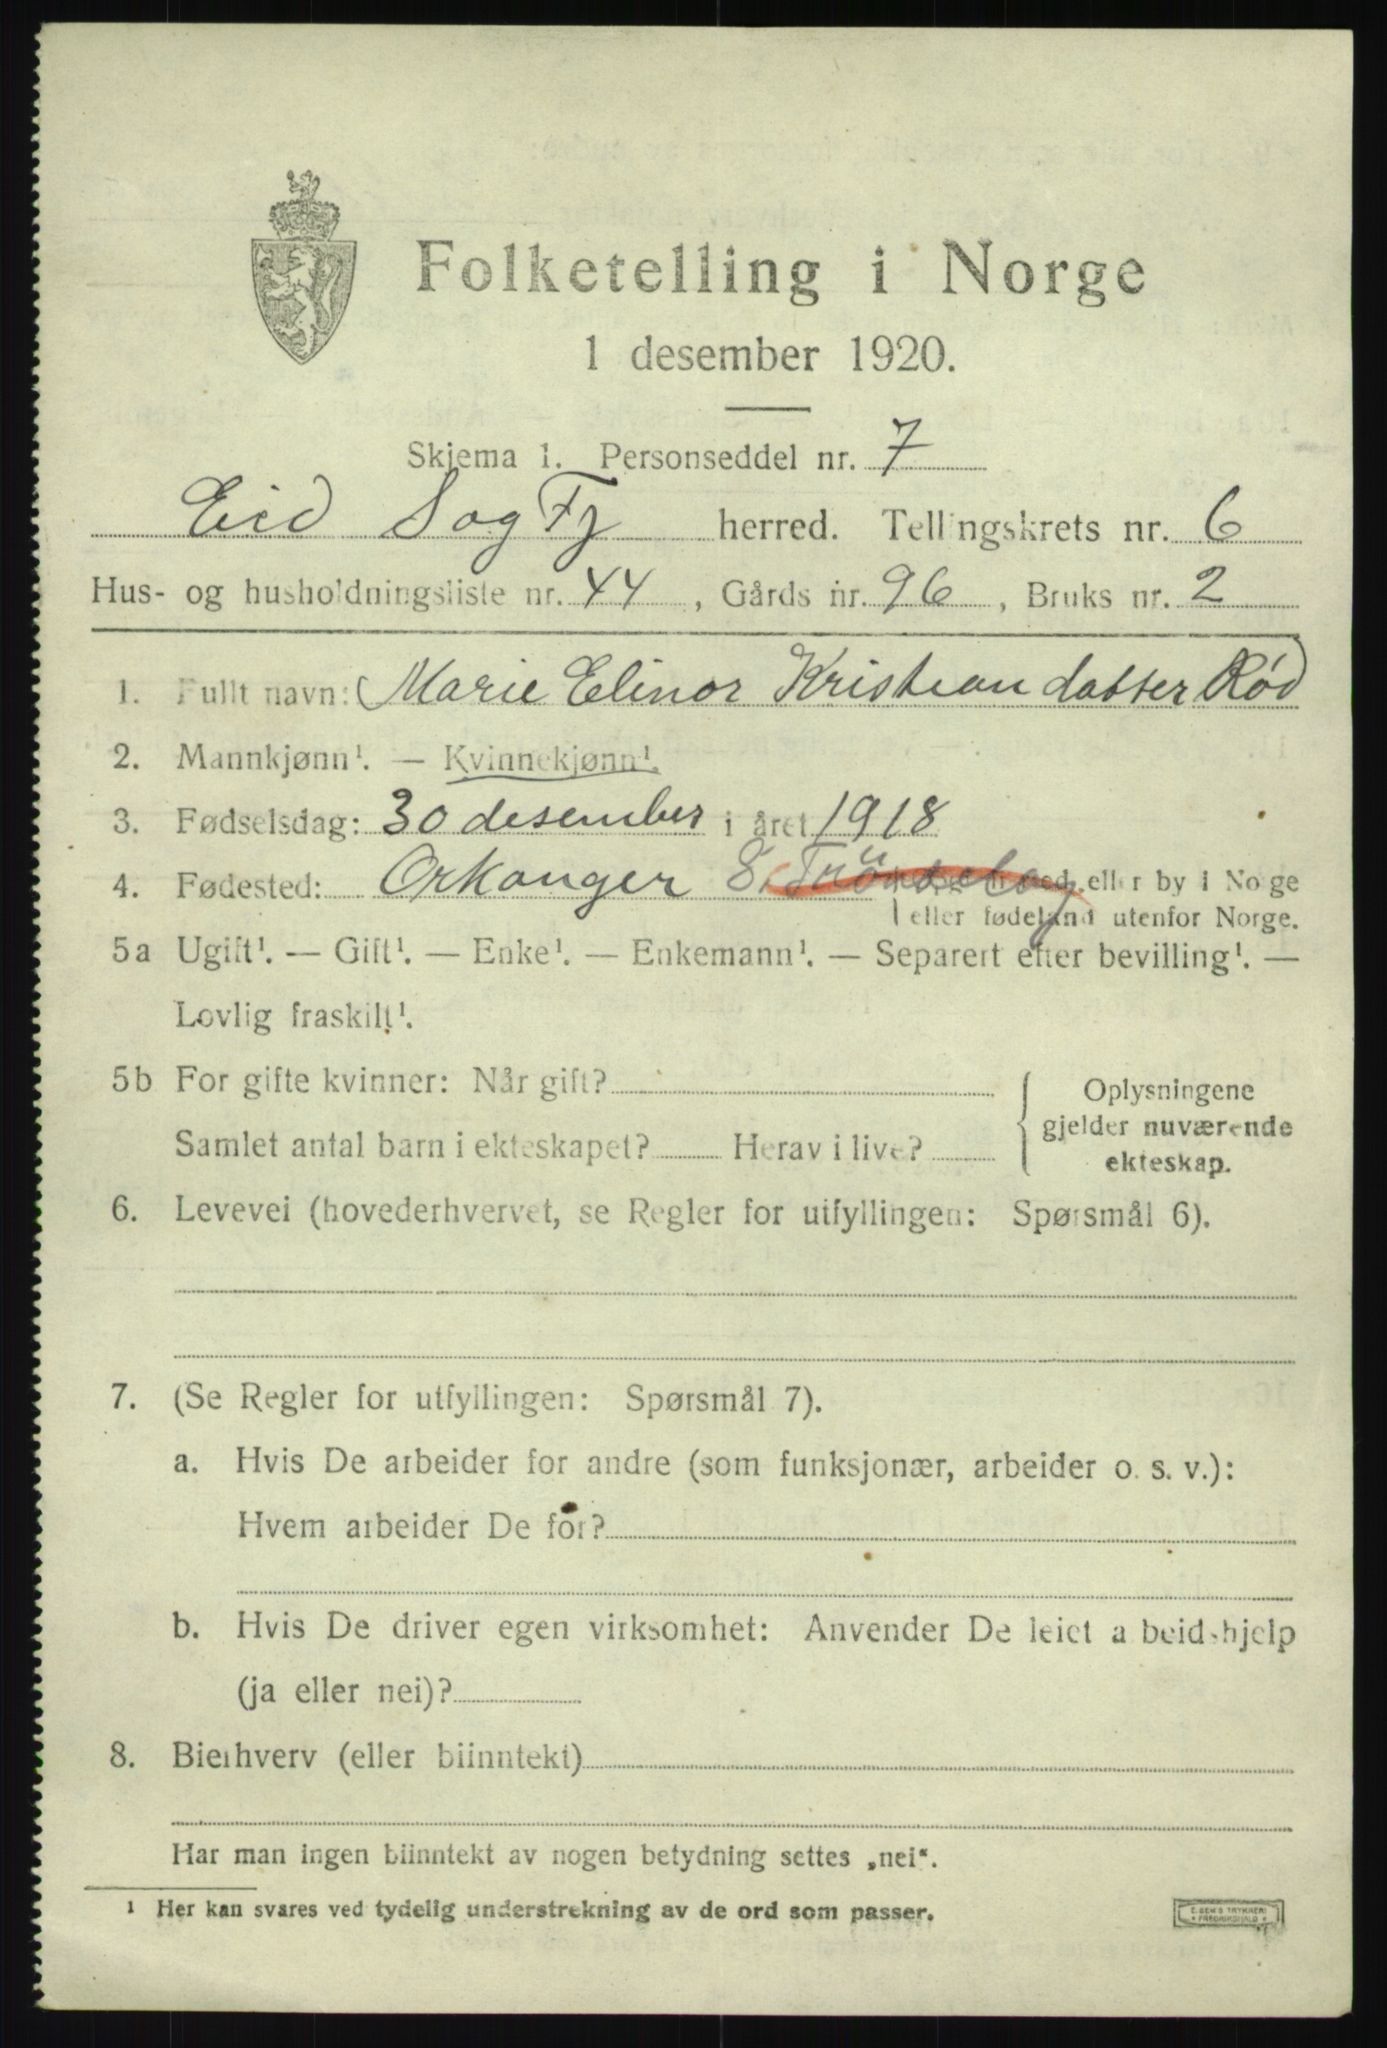 Folketelling i Norge
1 desember 1920.
Skjema 1. Personseddel nr. 7
Eid Sog Fj herred. Tellingskrets nr. 6
Hus- og husholdningsliste nr. 44, Gårds nr. 96, Bruks nr. 2
1. Fullt navn: (Marie Elinor Kristian datter Rød)
2. Mannkjønn¹. — Kvinnekjønn¹.
3. Fødselsdag: 30 desember i året 1918
4. Fødested: Orkanger S. Tröndelag eller by i Norge
eller fødeland utenfor Norge.
5a Ugift¹. — Gift¹. — Enke¹. — Enkemann¹. — Separert efter bevilling¹. —
Lovlig fraskilt¹.
5b For gifte kvinner: Når gift?
Samlet antal barn i ekteskapet? Herav i live?
Oplysningene
gjelder nuværende
ekteskap.
6. Levevei (hovederhvervet, se Regler for utfyllingen: Spørsmål 6).
7. (Se Regler for utfyllingen: Spørsmål 7).
a. Hvis De arbeider for andre (som funksjonær, arbeider o. s. v.):
Hvem arbeider De for?
b. Hvis De driver egen virksomhet: Anvender De leiet arbeidshjelp
(ja eller nei)?
8. Bierhverv (eller biinntekt)
Har man ingen biinntekt av nogen betydning settes „nei“.
¹ Her kan svares ved tydelig understrekning av de ord som passer.
E. SEMS TRYKKERI
FREDRIKSHALD